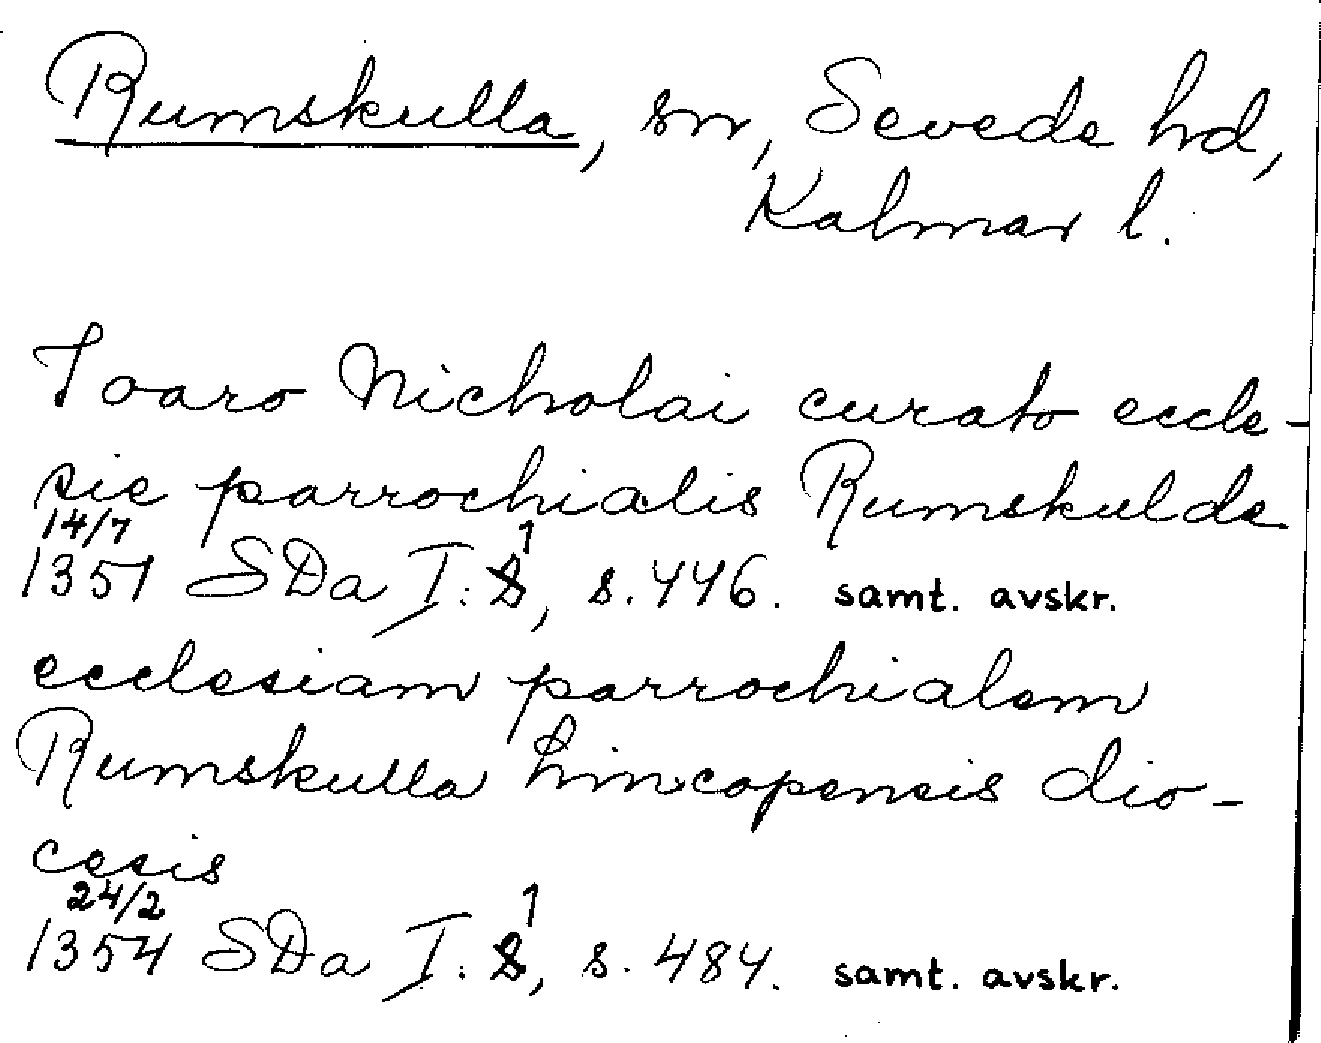 Rumskulla, sn, Sevede hd,
Kalmar l.
Joaro Nicholai curato eccle-
sie parrochialis Rumskulde
14/7
1351 SDa I:1, s. 446. samt. avskr.
ecclesiam parrochialem
Rumskulla Lincopensis dio-
cesis
24/2
1354 SDa I:1, s. 484. samt. avskr.